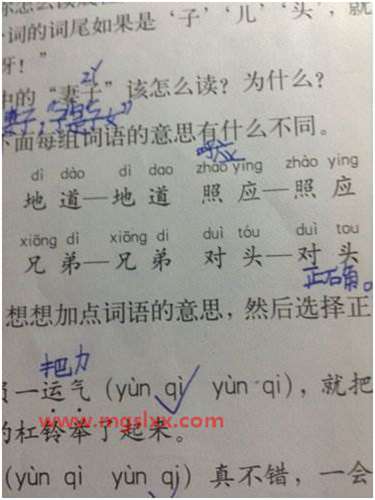 词的词尾如果是‘子’‘儿’‘头’，就
呀！”
中的“妻子”该怎么读？为什么？
下面每组词语的意思有什么不同。
呼应
dì dào dì dao zhào yìng zhào ying
地道—地道 照应—照应
xiōng dì xiōng di duì tóu duì tou
兄弟—兄弟 对头—对头
正确。
想想加点词语的意思，然后选择正
把力
一运气（yùn qì yùn qi），就把
的杠铃举了起来。
www.mgslxx.com
（yùn qì yùn qi）真不错，一会